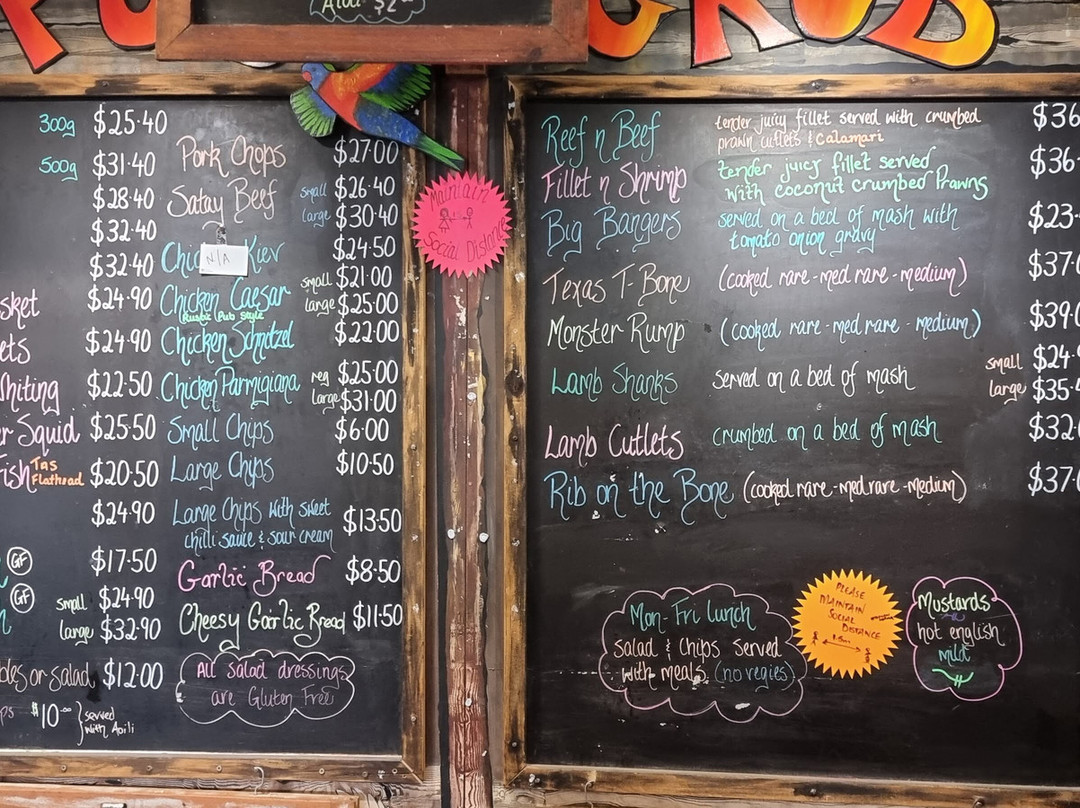 $2
300g $25.40
500g $31.40
$28.40
$32.40
$32.40
$24.90
$24.90
Whiting $22.50
Squid $25.50
Fish Tas Flathead $20.50
$24.90
GF $17.50
GF
small $24.90
large $32.90
or salad $12.00
$10.00 } served with Apili
Pork Chops $27.00
Satay Beef small $26.40
large $30.40
Chic N/A Kiev $24.50
Chicken Caesar small $21.00
Rustic Pub Style large $25.00
Chicken Schnitzel $22.00
Chicken Parmigiana reg $25.00
large $31.00
Small Chips $6.00
Large Chips $10.50
Large Chips with sweet
chilli sauce & sour cream $13.50
Garlic Bread $8.50
Cheesy Garlic Bread $11.50
All salad dressings
are Gluten Free
Maintain
Social Distance
GRUB
Reef n Beef tender juicy fillet served with crumbed $36
prawn cutlets & Calamari
Fillet n Shrimp tender juicy fillet served $36
with coconut crumbed Prawns
Big Bangers served on a bed of mash with $23
tomato onion gravy
Texas T-Bone (cooked rare-med rare-medium) $37.0
Monster Rump (cooked rare-med rare-medium) $39.0
Lamb Shanks served on a bed of mash small $24
large $35
Lamb Cutlets crumbed on a bed of mash $32
Rib on the Bone (cooked rare-med rare-medium) $37.0
Mon-Fri lunch
salad & chips served
with meals (no vegies)
PLEASE
MAINTAIN
SOCIAL
DISTANCE
Mustards
hot english
mild